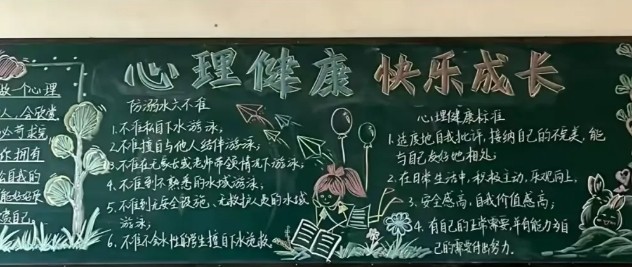 心理健康 快乐成长
做一个心理
人，会欣赏
你拥有
自我的
防溺水六不准
1.不准私自下水游泳，
2.不准擅自与他人结伴游泳；
3.不准在无家长或老师带领情况下游泳；
4.不准到不熟悉的水域游泳，
5.不准到无安全设施、无救护人员的水域
游泳；
6.不准不会水性的学生擅自下水施救。
心理健康标准
1.适度地自我批评，接纳自己的不完美，能
与自己友好地相处；
2.在日常生活中，积极主动，乐观向上，
3.安全感高，自我价值感高；
4.有自己的正常需要，并有能力为自
己的需要付出努力。